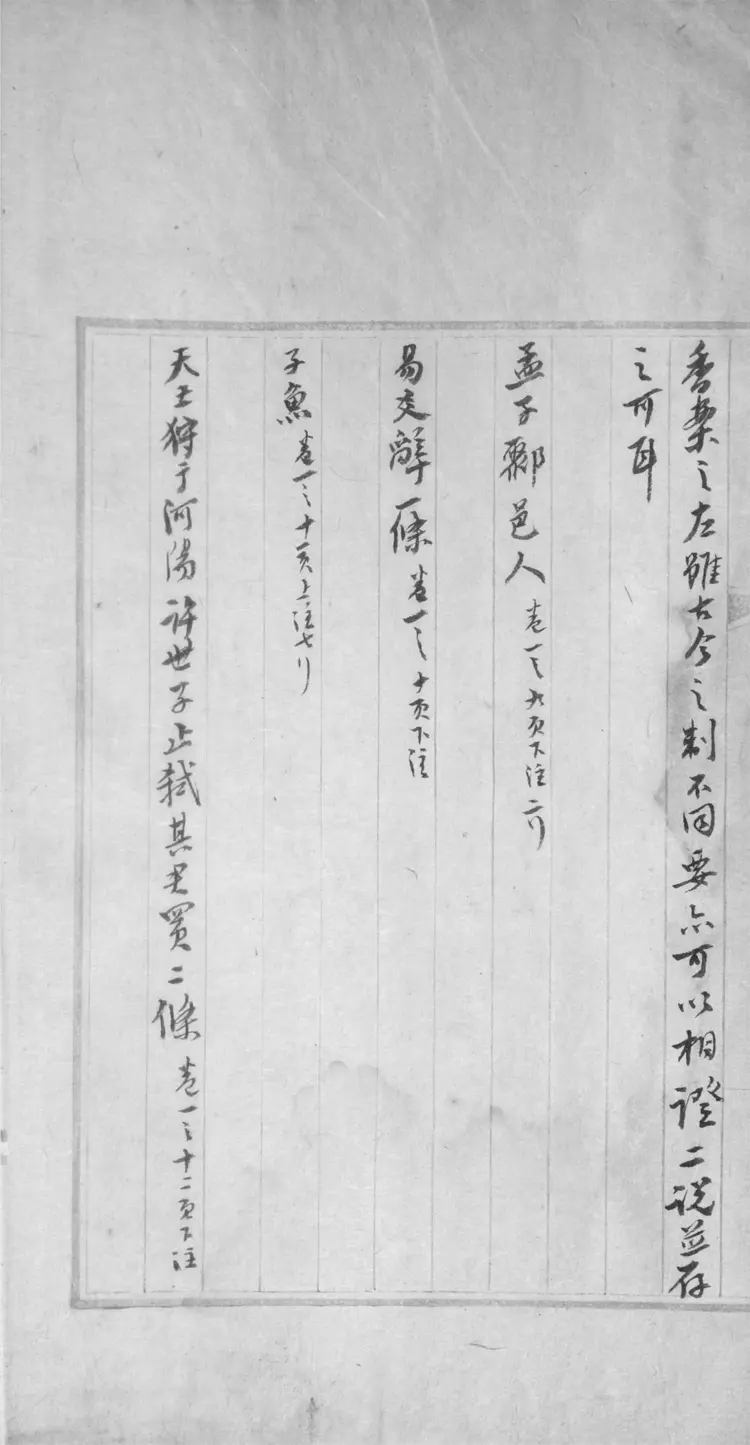 香案之左雖古今之制不同要亦可以相證二説並存
之可耳
孟子鄹邑人 卷一之九頁下注二行
易爻辭一條 卷一之十頁下注
子魚 卷一之十一頁上注七行
天王狩于河陽許世子止弑其君買二條 卷一之十二頁下注